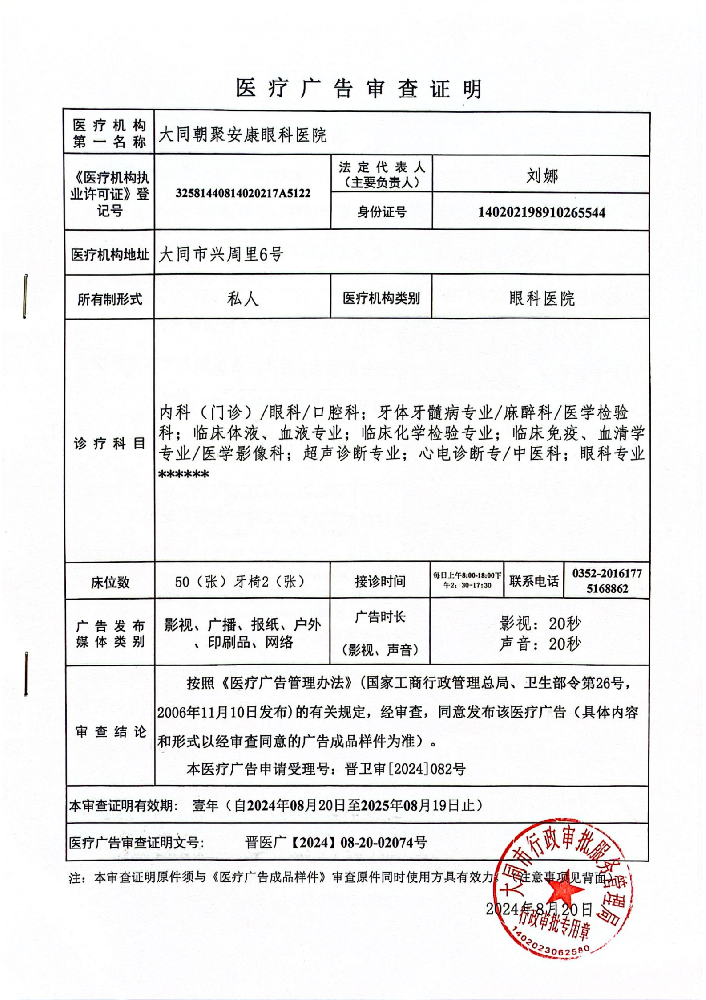 医疗广告审查证明
医疗机构
第一名称
大同朝聚安康眼科医院
《医疗机构执
业许可证》登
记号
32581440814020217A5122
法定代表人
（主要负责人）
刘娜
身份证号
140202198910265544
医疗机构地址
大同市兴周里6号
所有制形式
私人
医疗机构类别
眼科医院
诊疗科目
内科（门诊）/眼科/口腔科；牙体牙髓病专业/麻醉科/医学检验
科；临床体液、血液专业；临床化学检验专业；临床免疫、血清学
专业/医学影像科；超声诊断专业；心电诊断专/中医科；眼科专业
******
床位数
50（张）牙椅2（张）
接诊时间
每日上午8:00-18:00下
午2：30-17:30
联系电话
0352-2016177
5168862
广告发布
媒体类别
影视、广播、报纸、户外
、印刷品、网络
广告时长
（影视、声音）
影视：20秒
声音：20秒
审查结论
按照《医疗广告管理办法》(国家工商行政管理总局、卫生部令第26号，
2006年11月10日发布)的有关规定，经审查，同意发布该医疗广告（具体内容
和形式以经审查同意的广告成品样件为准）。
本医疗广告申请受理号：晋卫审[2024]082号
本审查证明有效期：壹年（自2024年08月20日至2025年08月19日止）
医疗广告审查证明文号：晋医广【2024】08-20-02074号
注：本审查证明原件须与《医疗广告成品样件》审查原件同时使用方具有效力 注意事项见背面
2024年8月20日
大同市行政审批服务管理局
行政审批专用章
1402023062580